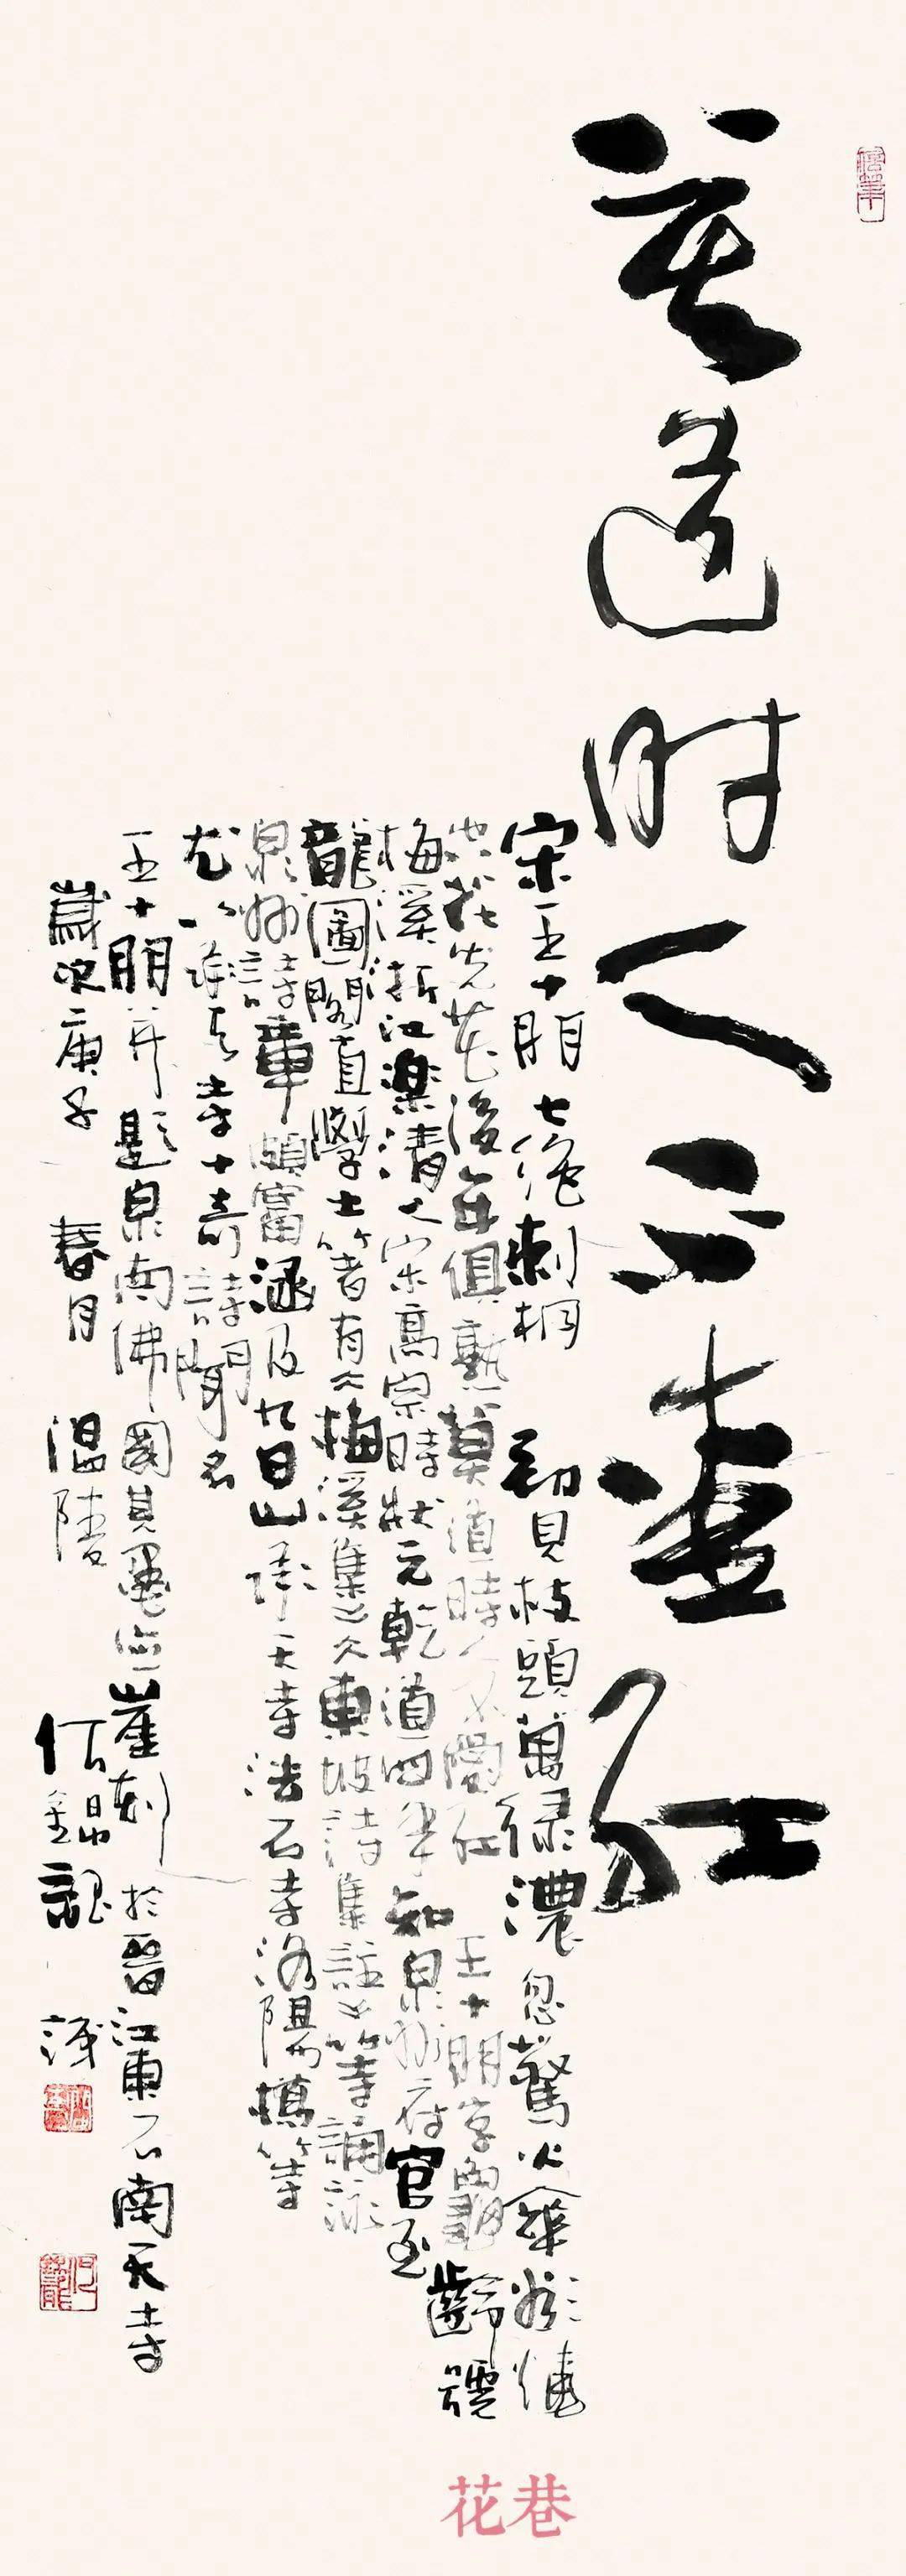 莫道时人不爱红
宋王十朋七绝刺桐　初見枝頭萬绿濃忽驚火傘欲燒
空花先花後年俱熟莫道時人不愛紅　王十朋字龜齡號
梅溪浙江樂清人宋高宗時狀元乾道四年知泉州府官至
龍圖閣直學士著有梅溪集東坡詩集註等誦詠
泉州詩章頗富涵及九日山承天寺法石寺洛陽橋等
尤以承天寺十奇詩聞名
王十朋并題泉南佛國其墨寶崖刻於晋江東石南天寺
歲次庚子　春月　温陵
花巷